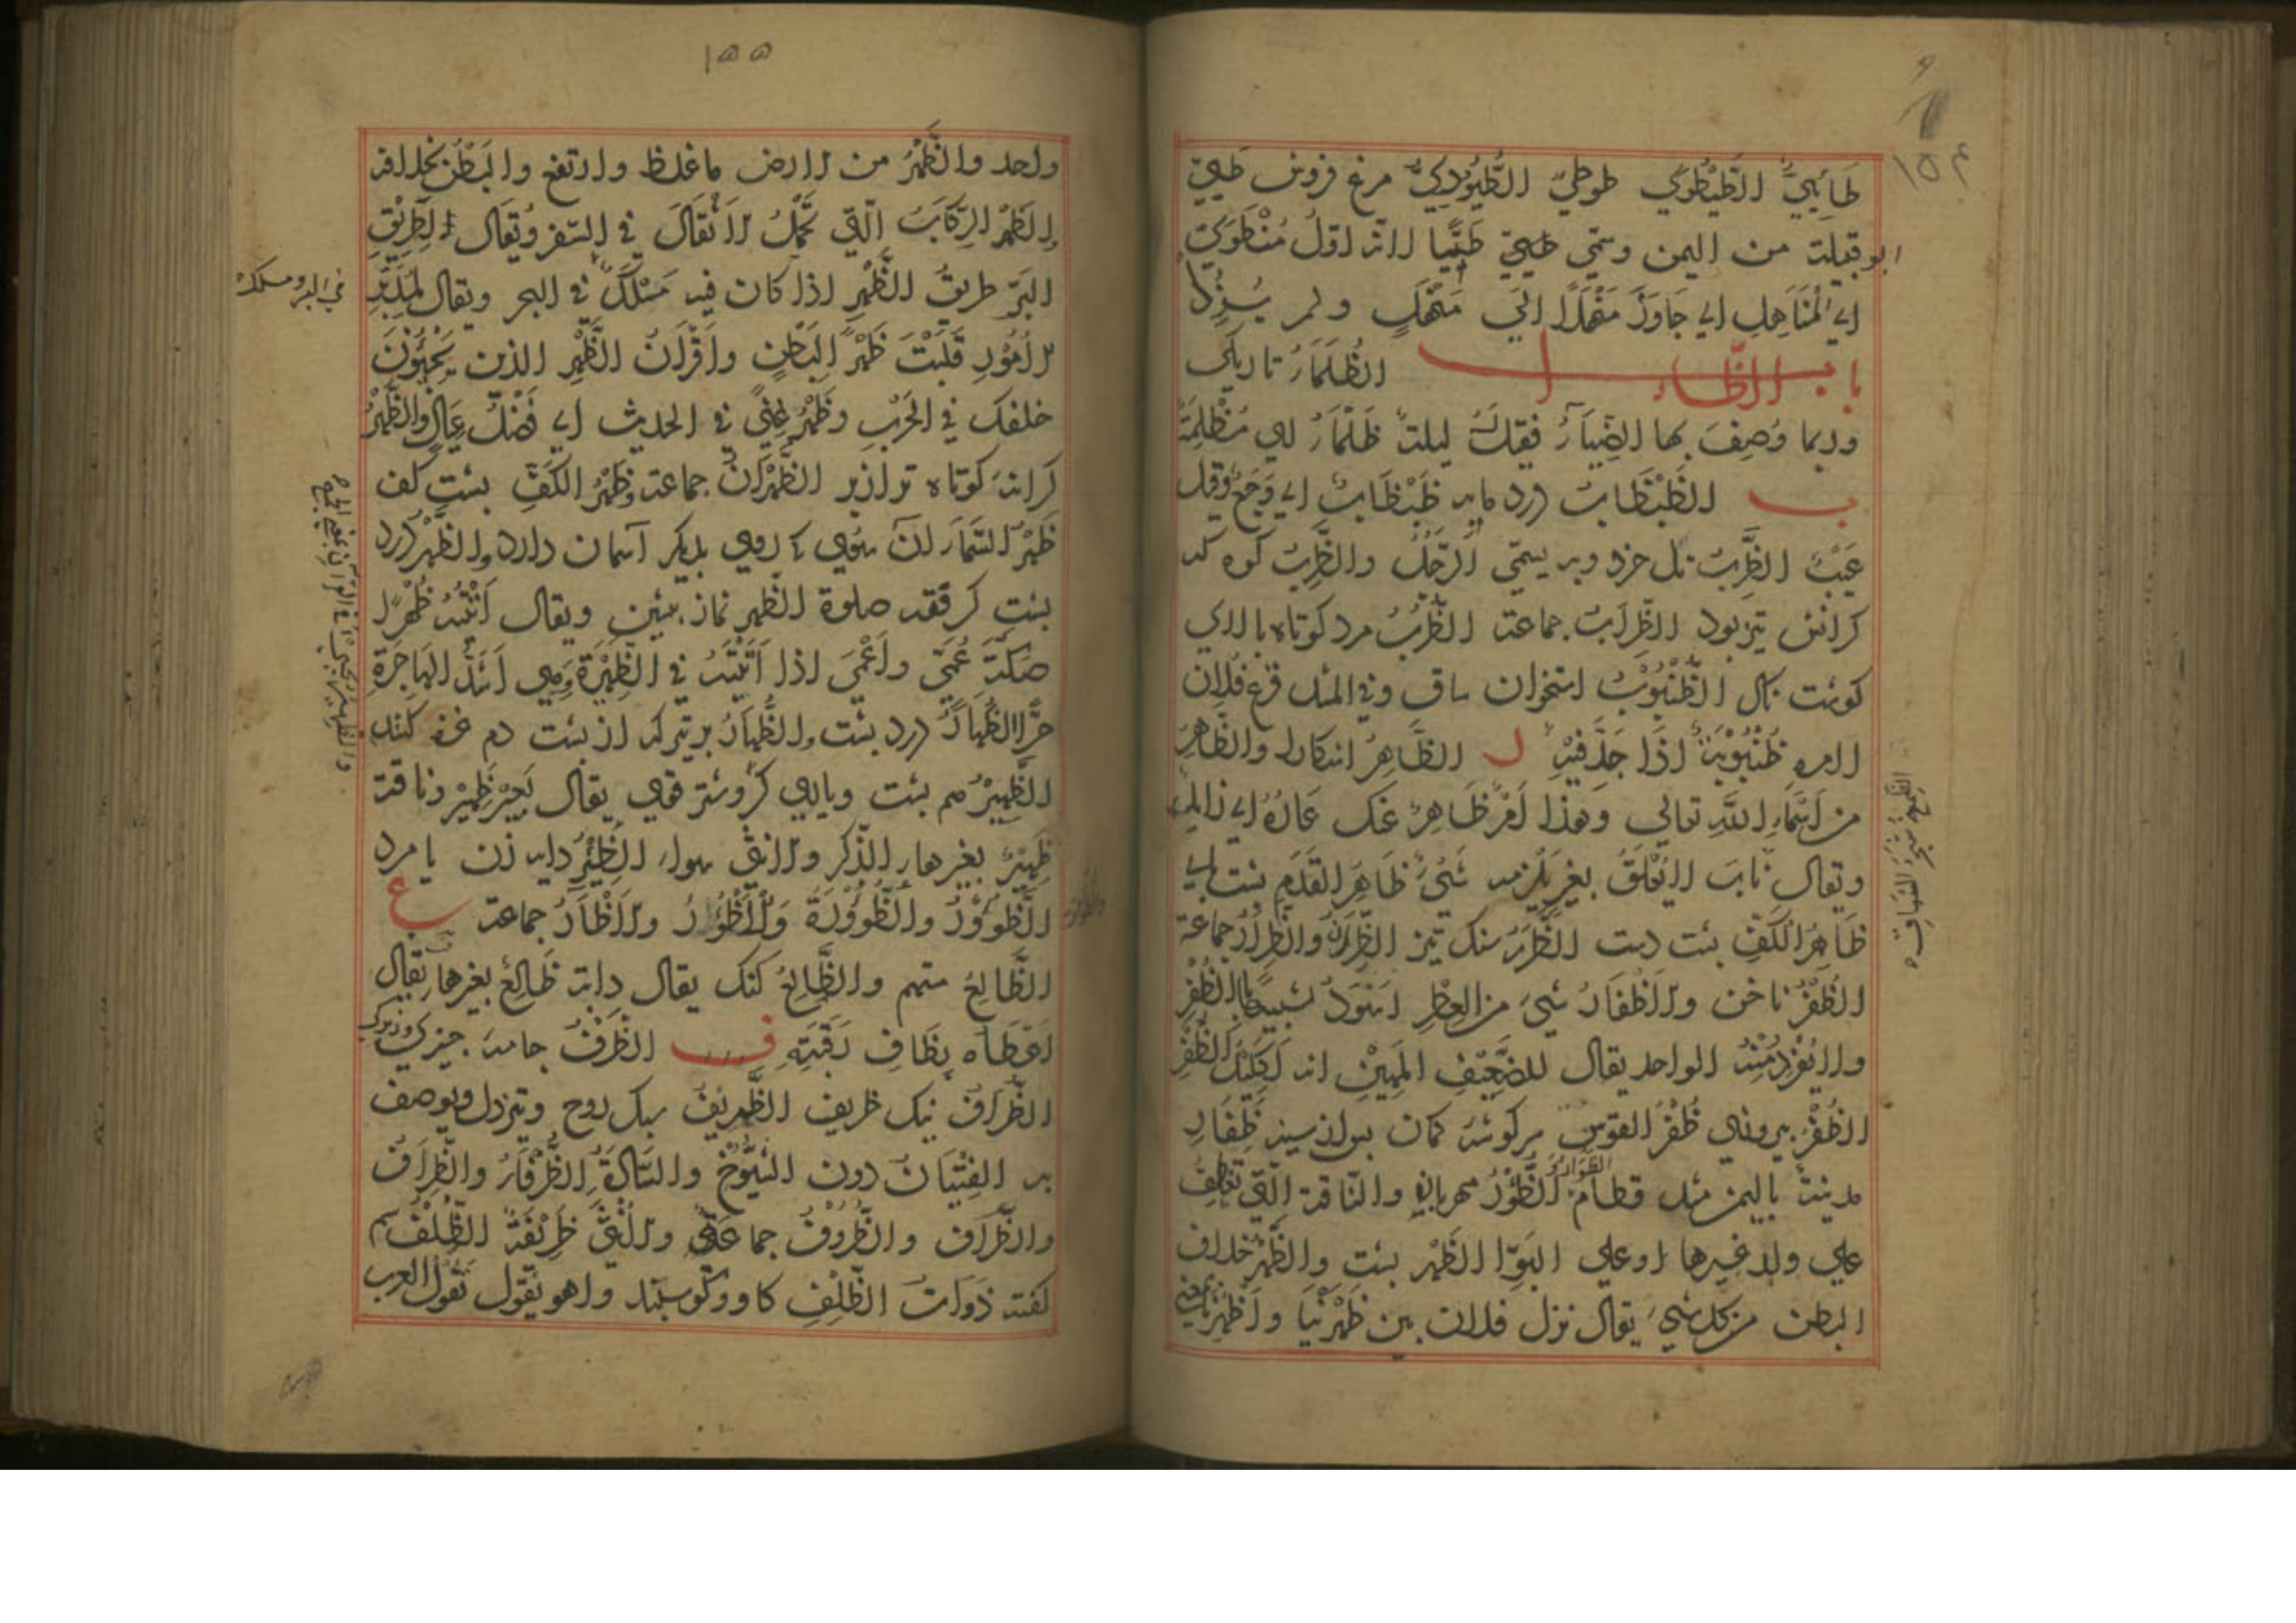 ١٥٤
طَائِيٌّ الطَّيْطَوِي طوطيّ الطُّيُوْرِيُّ مرغ فروش طَيّ
ابو قبيلة من اليمن وسمّي طيّ طَيًّا لانّه اوّل مَنْ طَوَى
اي الْمَنَاهِلِ اي جَاوَزَ مَنْهَلًا الى مَنْهَلٍ ولم يَنْزِلْ
باب الظّاء ا الظُّلَمَاءُ تاريكى
وربما وُصِفَ بها الضِّيَاءُ فيقال ليلة ظَلْمَاءُ اي مُظْلِمَةٌ
ب الظَّبْظَابُ درد مابه ظَبْظَابٌ اي وَجَعٌ وقيل
عَيْبٌ الظَّرِبُ تل خرد وبه يسمّى الرّجُلُ والظَّرِبُ كوه كه
كرانش تيز بود الظِّرَابُ جماعة الظُّرُبُّ مرد كوتاه بالاى
كوشت ناك الظُّنْبُوْبُ استخوان ساق وفي المثل قرع فلان
لامره ظُنْبُوْبَهُ اذَا جَدَّ فِيْهِ ر الظَّاهِرُ اشكارا والظَّاهِرُ
من اَسْمَاءِ اللهِ تعالى وهذا اَمْرٌ ظَاهِرٌ عَنْكَ عَارُهُ اي زايل
ويقال نَابَ لا يُعْلَقُ بغير يلزمه شَيْءٌ ظَاهِرُ القَدَمِ پشت پاى
ظَاهِرُ الْكَفِّ پشت دست الظُّرَرُ سنك تيز الظِّرَّانُ والظِّرَارُ جماعة
الظُّفْرُ ناخن والاَظْفَارُ شَيْءٌ من العِطْرِ اَسْوَدُ شَبِيْهًا بالظُّفْرِ
ولا يُفْرَدُ مِنْهُ الواحد يقال للضَّعِيْفِ المَهِيْنِ انه لَكَلِيْلُ الظُّفْرِ
الظُّفْرُ بيرونى ظُفْرُ القوس بركوشه كمان پس از سيه ظَفَارِ
مدينة باليمن مثل قطام الظَّؤُرُ مهربان والنّاقة الّتي تعطف
على ولد غيرها او على البَوِّ الظَّهْرُ پشت والظَّهْرُ خلاف
البطن من كل شيء يقال نزل فلان بين ظَهْرَيْنَا واَظْهُرِنَا بمعنى
١٥٥
واحد والظَّهْرُ من الارض ما غلظ وارتفع والبَطْنُ بخلافه
الظَّهْرُ الرِّكَابُ الّتي تَحْمِلُ الاَثْقَالَ في السّفر وتُقَال لِطَرِيْقِ
البَرّ طريقُ الظَّهْرِ اذا كان فيه مَسْلَكٌ في البحر ويقال لِمُدَبِّرِ
الاُمُوْرِ قَلَبْتَ ظَهْرً الِبَطْنٍ واَقْرَانُ الظَّهْرِ الذين يَجِيْؤُنَ
خلفك في الحَرْبِ وظَهْرُ غِنًى في الحديث اي فَضْلُ عِيَالٍ والظَّهْرُ
كرانه كوتاه تر از پر الظُّهْرَانُ جماعة وظَهْرُ الكَفِّ پشت كف
ظَهْرُ السَّمَاءِ ان سوى كه روى بديكر آسمان دارد والظَّهَرُ درد
پشت كرفته صلوة الظهر نماز پيشين ويقال اَتَيْتُهُ ظُهْرًا
صَكَّةَ عُمَيٍّ واَعْمَى اذا اَتَيْتَهُ في الظَّهِيْرَةِ وَهِيَ اَشَدُّ الهَاجِرَةِ
حَرًّا الظُّهَارُ درد پشت والظُّهَارُ پر تير كه از پشت دم مرغ كنند
الظَّهِيْرُ هم پشت ويارى كر وشتر قوى يقال بَعِيْرٌ ظَهِيْرٌ وناقة
ظَهِيْرٌ بغير هاء الذّكر والانثى سواء الظِّئْرُ دايه زن يا مرد
الظُّؤُوْرُ والظُّؤُوْرَةُ وَالْاَظْؤُرُ والاَظْآرُ جماعة ع
الظَّالِعُ متهم والظَّالِعُ لنك يقال دابة ظَالِعٌ بغير هاء يقال
اَعْطَاه بِظَافِ رَقَبَتِهِ ف الظَّرْفُ جامه چيزى وزيركى
الظُّرَافُ نيك ظريف الظَّرِيْفُ سبك روح وتيزدل ويوصف
به الفِتْيَانُ دون الشُّيُوْخِ والسَّادَةِ الظُّرَفَاءُ والظِّرَافُ
والظُّرَّافُ والظُّرُوْفُ جماعة والاُنْثَى ظَرِيْفَةٌ الظِّلْفُ سم
كفته ذَوَاتُ الظِّلْفِ كاو وكوسپند واهو يَقُوْل تَقُوْلُ العرب
في البر ومسلك